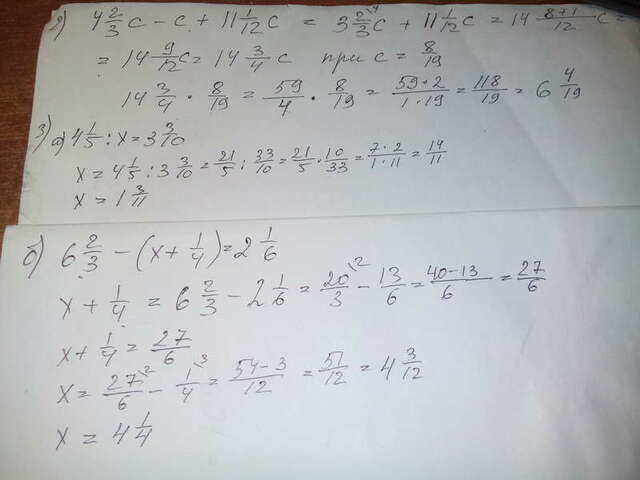 г) 4 2/3 c - c + 11 1/12 c = 3 2/3 c + 11 1/12 c = 14 8+1/12 c =
= 14 9/12 c = 14 3/4 c при c = 8/19
14 3/4 · 8/19 = 59/4 · 8/19 = 59·2/1·19 = 118/19 = 6 4/19
3) а) 4 1/5 : x = 3 3/10
x = 4 1/5 : 3 3/10 = 21/5 : 33/10 = 21/5 · 10/33 = 7·2/1·11 = 14/11
x = 1 3/11
б) 6 2/3 - (x + 1/4) = 2 1/6
x + 1/4 = 6 2/3 - 2 1/6 = 20/3 \2 - 13/6 = 40-13/6 = 27/6
x + 1/4 = 27/6
x = 27/6 \2 - 1/4 \3 = 54-3/12 = 51/12 = 4 3/12
x = 4 1/4